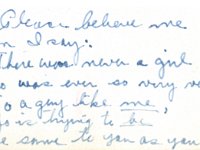 Please believe me
n I say:
There never a girl
o was ever so very n
o a guy like me,
o is trying to be
e same to you as you